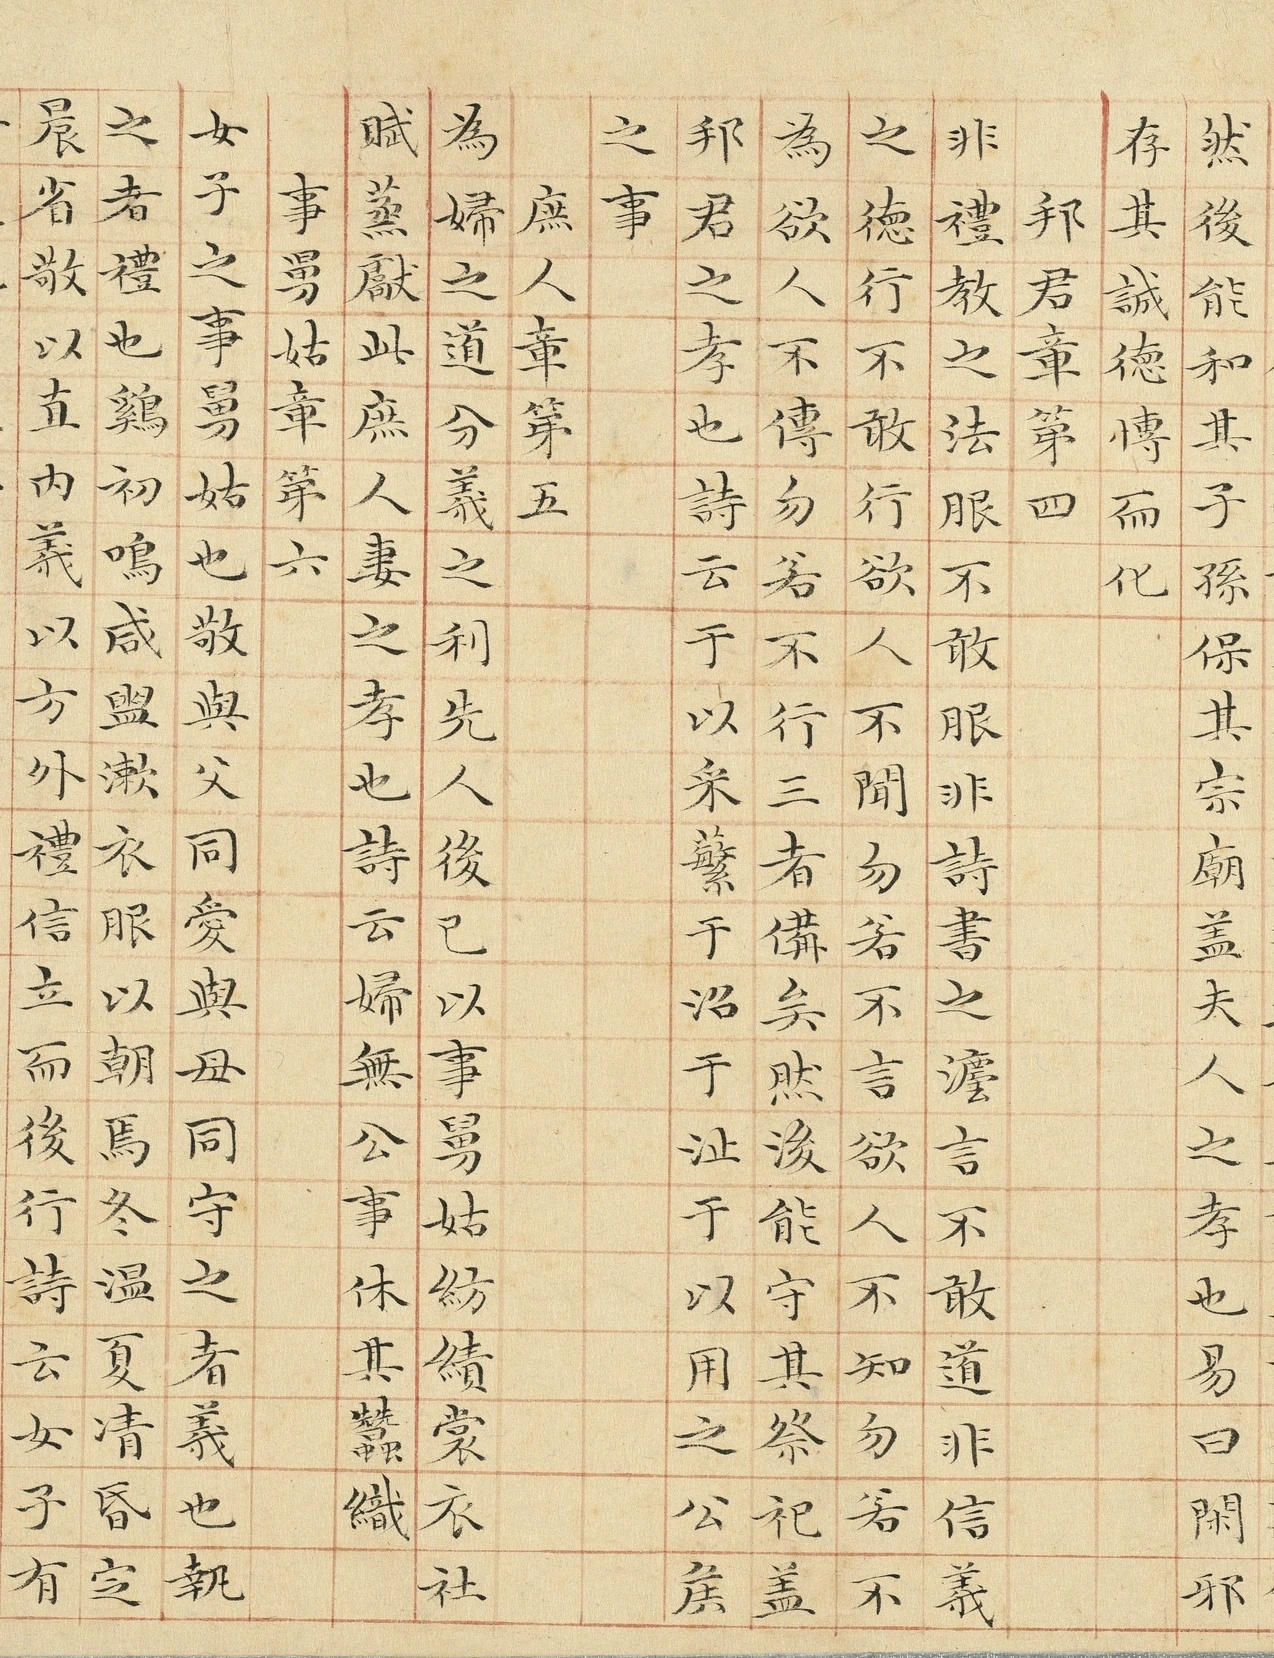 然後能和其子孫保其宗廟盖夫人之孝也易曰閑邪
存其誠德愽而化
邦君章第四
非禮教之法服不敢服非詩書之灋言不敢道非信義
之德行不敢行欲人不聞勿若不言欲人不知勿若不
為欲人不傳勿若不行三者備矣然後能守其祭祀盖
邦君之孝也詩云于以采蘩于沼于沚于以用之公侯
之事
庶人章第五
為婦之道分義之利先人後已以事舅姑紡績裳衣社
賦蒸獻此庶人妻之孝也詩云婦無公事休其蠶織
事舅姑章第六
女子之事舅姑也敬與父同愛與母同守之者義也執
之者禮也鷄初鳴咸盥漱衣服以朝焉冬温夏凊昏定
晨省敬以直內義以方外禮信立而後行詩云女子有